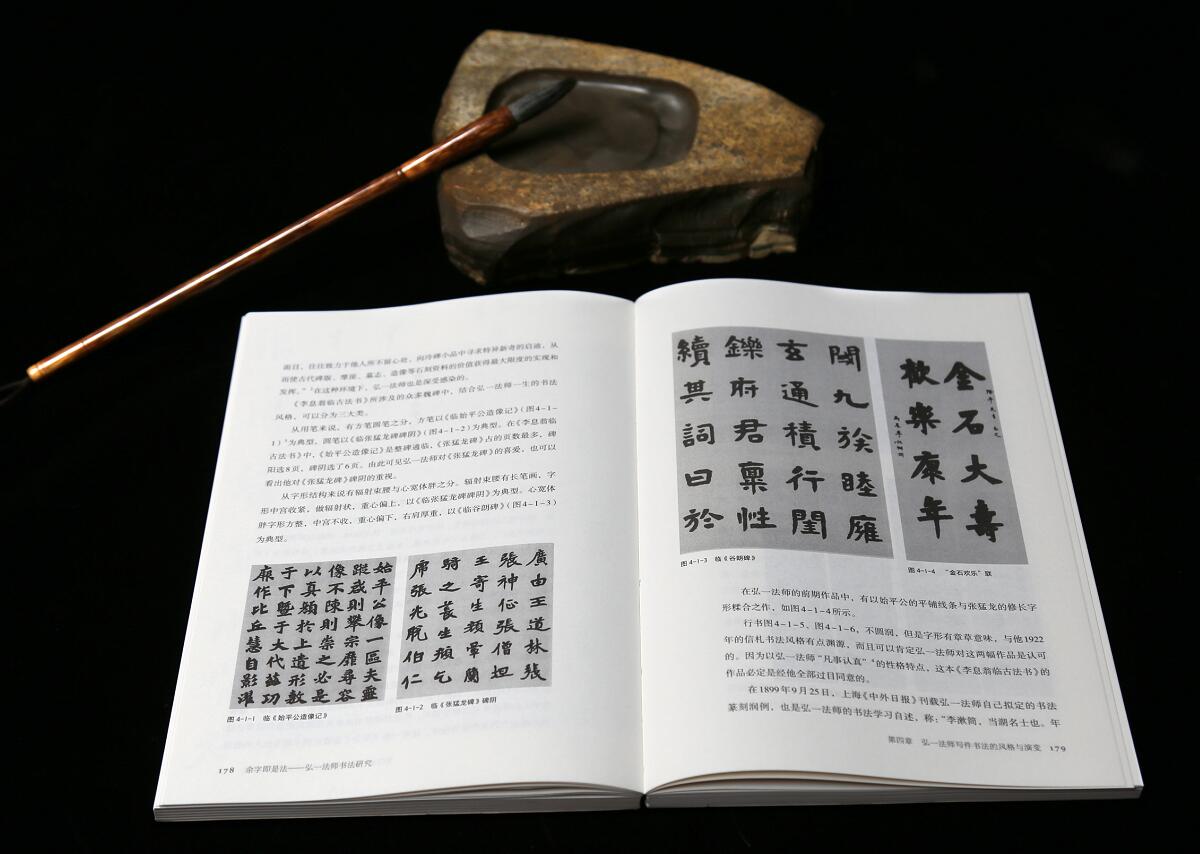 面目，往往致力于他人所不留心处，向冷碑小品中寻求特异新奇的启迪，从
而使古代碑版、摩崖、墓志、造像等石刻资料的价值获得最大限度的实现和
发挥。”³在这种环境下，弘一法师也是深受感染的。
《李息翁临古法书》所涉及的众多魏碑中，结合弘一法师一生的书法
风格，可以分为三大类。
从用笔来说，有方笔圆笔之分，方笔以《临始平公造像记》（图4-1-
1）⁴为典型，圆笔以《临张猛龙碑碑阴》（图4-1-2）为典型。在《李息翁临
古法书》中，《始平公造像记》是整碑通临，《张猛龙碑》占的页数最多，碑
阳选8页，碑阴选了6页。由此可见弘一法师对《张猛龙碑》的喜爱，也可以
看出他对《张猛龙碑》碑阴的重视。
从字形结构来说有辐射束腰与心宽体胖之分。辐射束腰有长笔画，字
形中宫收紧，做辐射状，重心偏上，以《临张猛龙碑碑阴》为典型。心宽体
胖字形方整，中宫不收，重心偏下，右肩厚重，以《临谷朗碑》（图4-1-3）
为典型。
始平公像一區夫靈
蹤或則舉宗靡尋容
像不陳則崇之必是
以真顏於上遺形敷
于下暨于大代茲功
廟作比丘慧自影濯
图 4-1-1 临《始平公造像记》
廣由王道林張
張神伈張僧坦
王寄生頮暈蘭
騎之萇生殰乞
席張兆脫伯仁
图 4-1-2 临《张猛龙碑》碑阴
178 余字即是法——弘一法师书法研究
閩九族睦雍
玄通積行閨
鑠府君稟性
續其詞曰於
图 4-1-3 临《谷朗碑》
金石大壽
歡樂康年
图 4-1-4 “金石欢乐”联
在弘一法师的前期作品中，有以始平公的平铺线条与张猛龙的修长字
形糅合之作，如图4-1-4所示。
行书图4-1-5、图4-1-6，不圆润，但是字形有章草意味，与他1922
年的信札书法风格有点渊源，而且可以肯定弘一法师对这两幅作品是认可
的。因为以弘一法师“凡事认真”⁶的性格特点，这本《李息翁临古法书》的
作品必定是经他全部过目同意的。
在1899年9月25日，上海《中外日报》刊载弘一法师自己拟定的书法
篆刻润例，也是弘一法师的书法学习自述，称：“李漱筒，当湖名士也。年
第四章 弘一法师写件书法的风格与演变 179